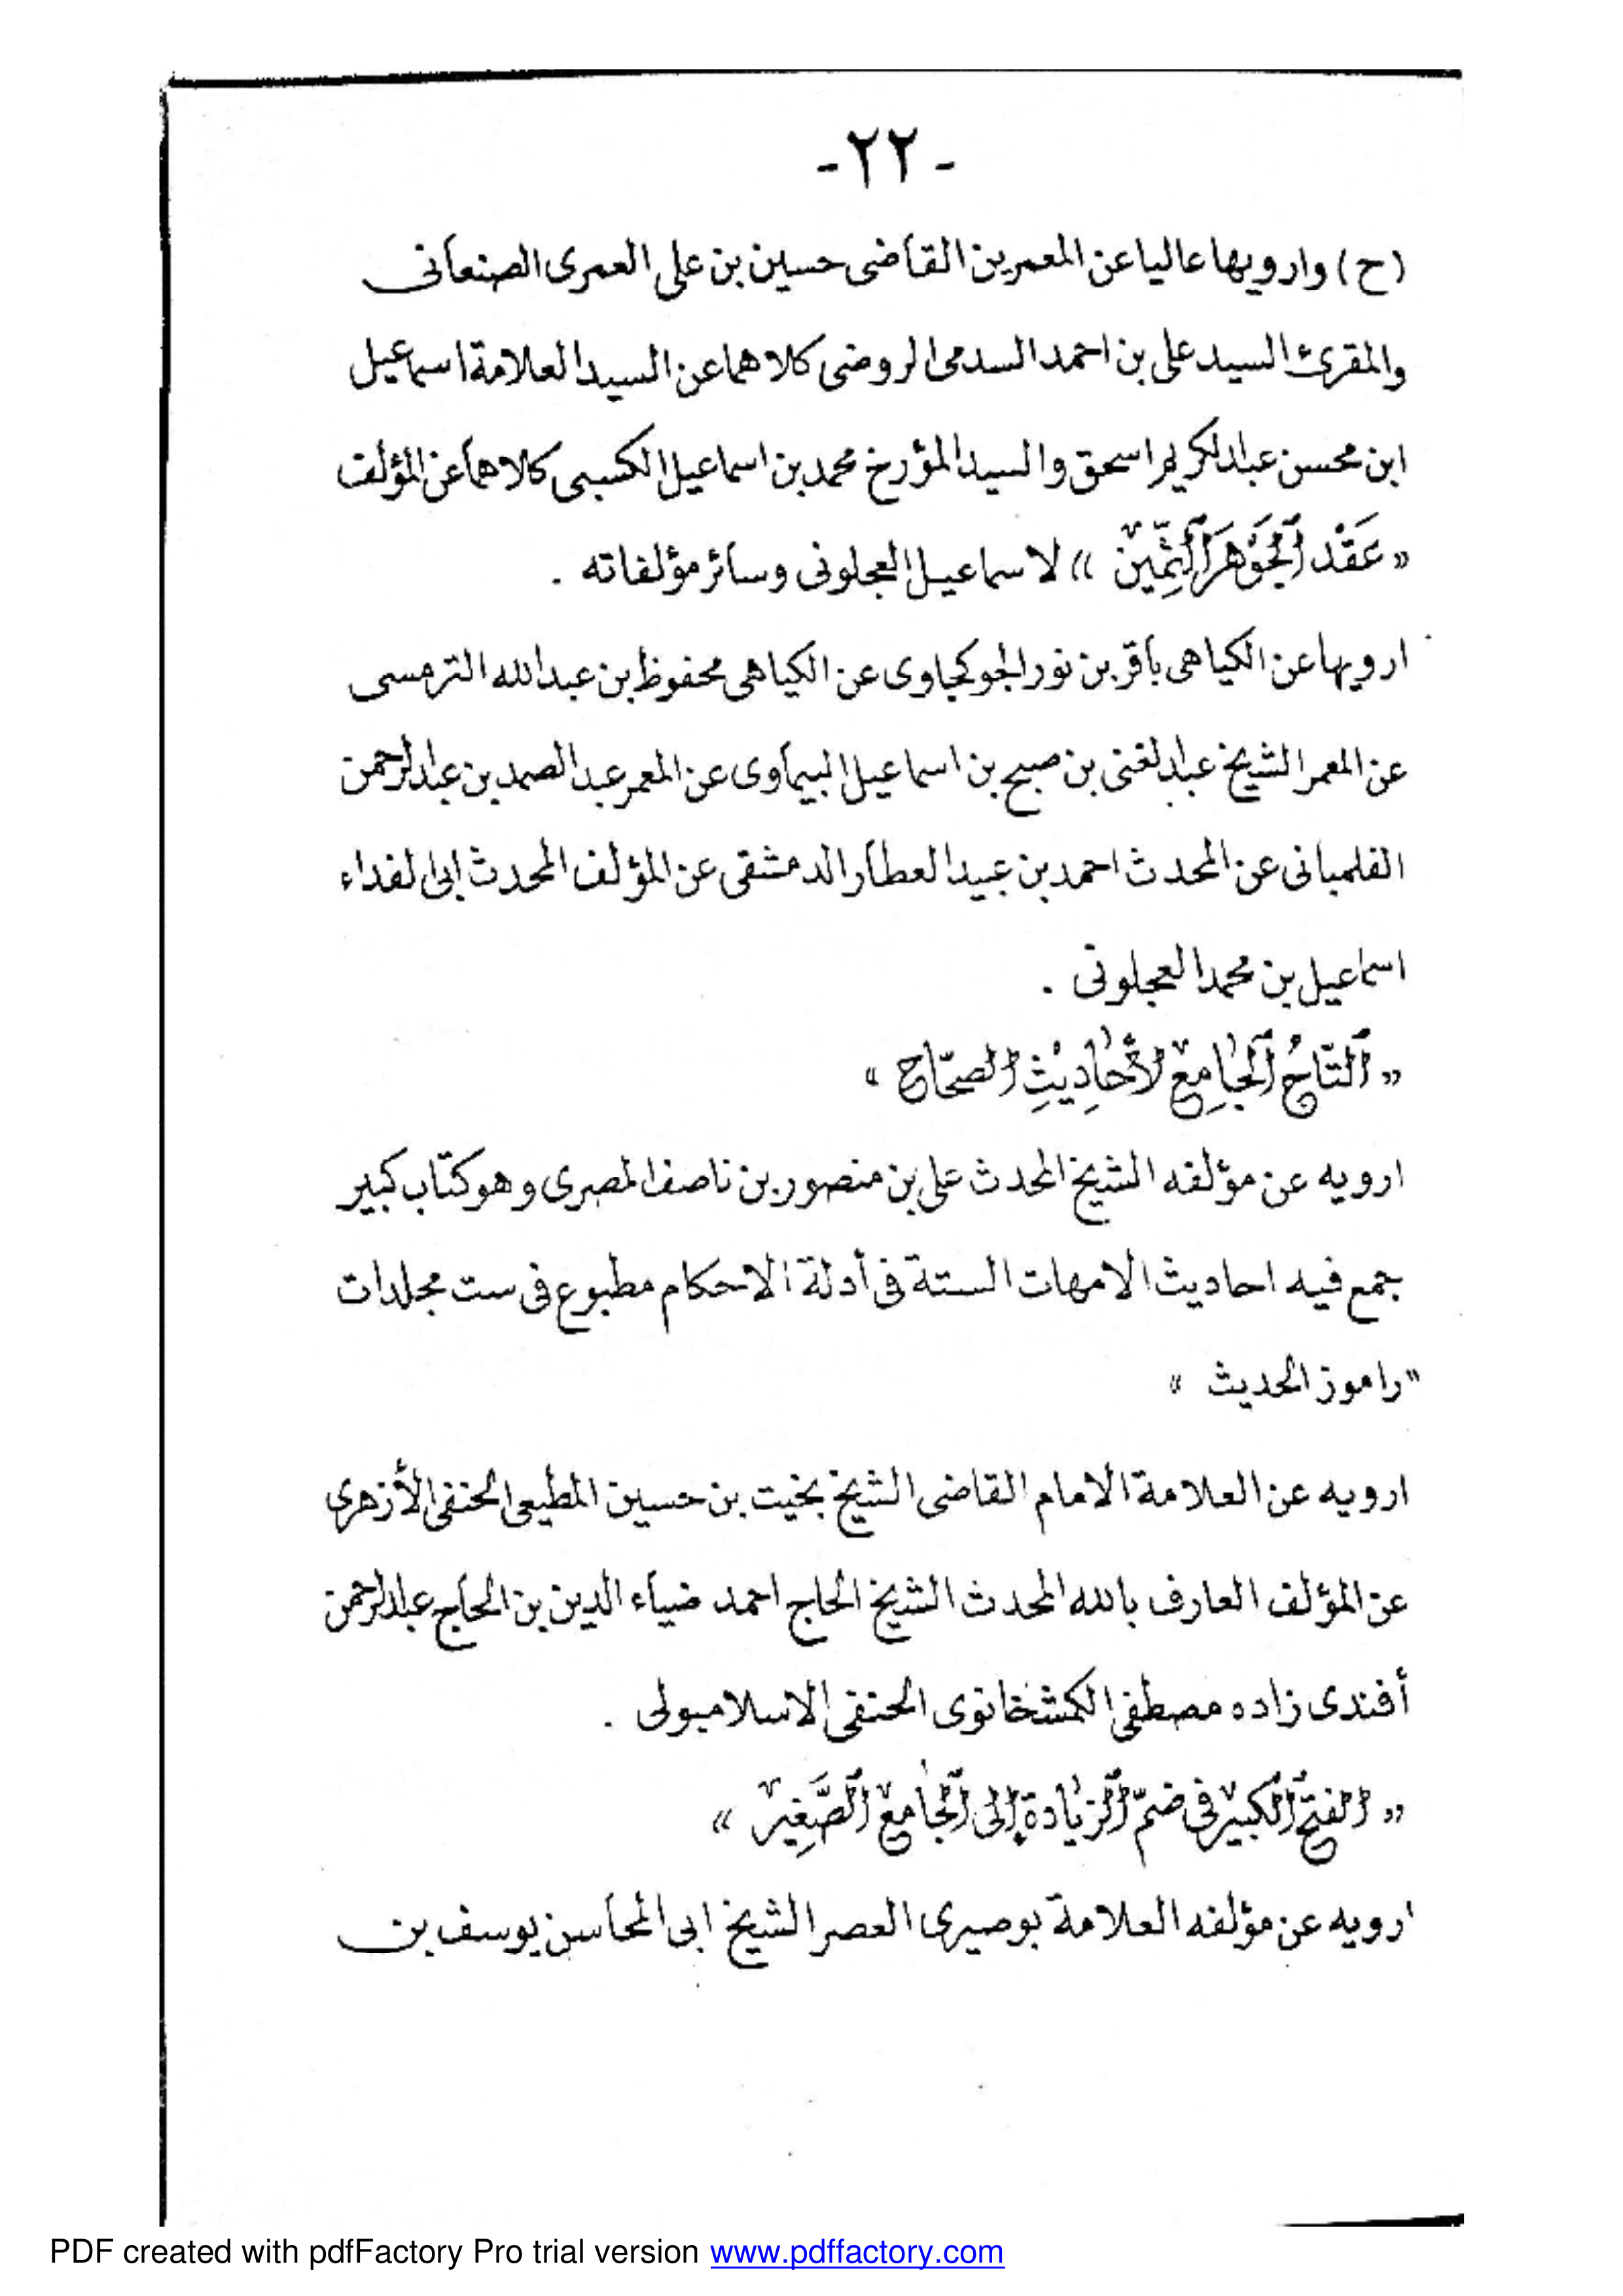 - ٢٢ -
(ح) وارويها عاليا عن المعمرين القاضى حسين بن على العمرى الصنعانى
والمقرئ السيد على بن احمد السدمى الروضى كلاهما عن السيد العلامة اسماعيل
ابن محسن عبدالكريم اسحق والسيد المؤرخ محمد بن اسماعيل الكبسى كلاهما عن المؤلف
« عَقْد الجَوْهَر الثَّمِين » لاسماعيل العجلونى وسائر مؤلفاته .
ارويها عن الكياهى باقر بن نور الجوكجاوى عن الكياهى محفوظ بن عبدالله الترمسى
عن المعمر الشيخ عبدالغنى بن صبح بن اسماعيل البيماوى عن المعمر عبدالصمد بن عبدالرحمن
الفلمبانى عن المحدث احمد بن عبيد العطار الدمشقى عن المؤلف المحدث ابى الفداء
اسماعيل بن محمد العجلونى .
« التَّاجُ الجَامِع لأحَادِيثِ الصحَاح »
ارويه عن مؤلفه الشيخ المحدث على بن منصور بن ناصف المصرى وهو كتاب كبير
جمع فيه احاديث الامهات الستة فى أدلة الاحكام مطبوع فى ست مجلدات
" راموز الحديث "
ارويه عن العلامة الامام القاضى الشيخ بخيت بن حسين المطيعى الحنفى الأزهرى
عن المؤلف العارف بالله المحدث الشيخ الحاج احمد ضياء الدين بن الحاج عبدالرحمن
أفندى زاده مصطفى الكمشخانوى الحنفى الاسلامبولى .
« الفتح الكبير فى ضمّ الزيَادة إلى الجَامع الصَّغِير »
ارويه عن مؤلفه العلامة بوصيرى العصر الشيخ ابى المحاسن يوسف بن
PDF created with pdfFactory Pro trial version www.pdffactory.com